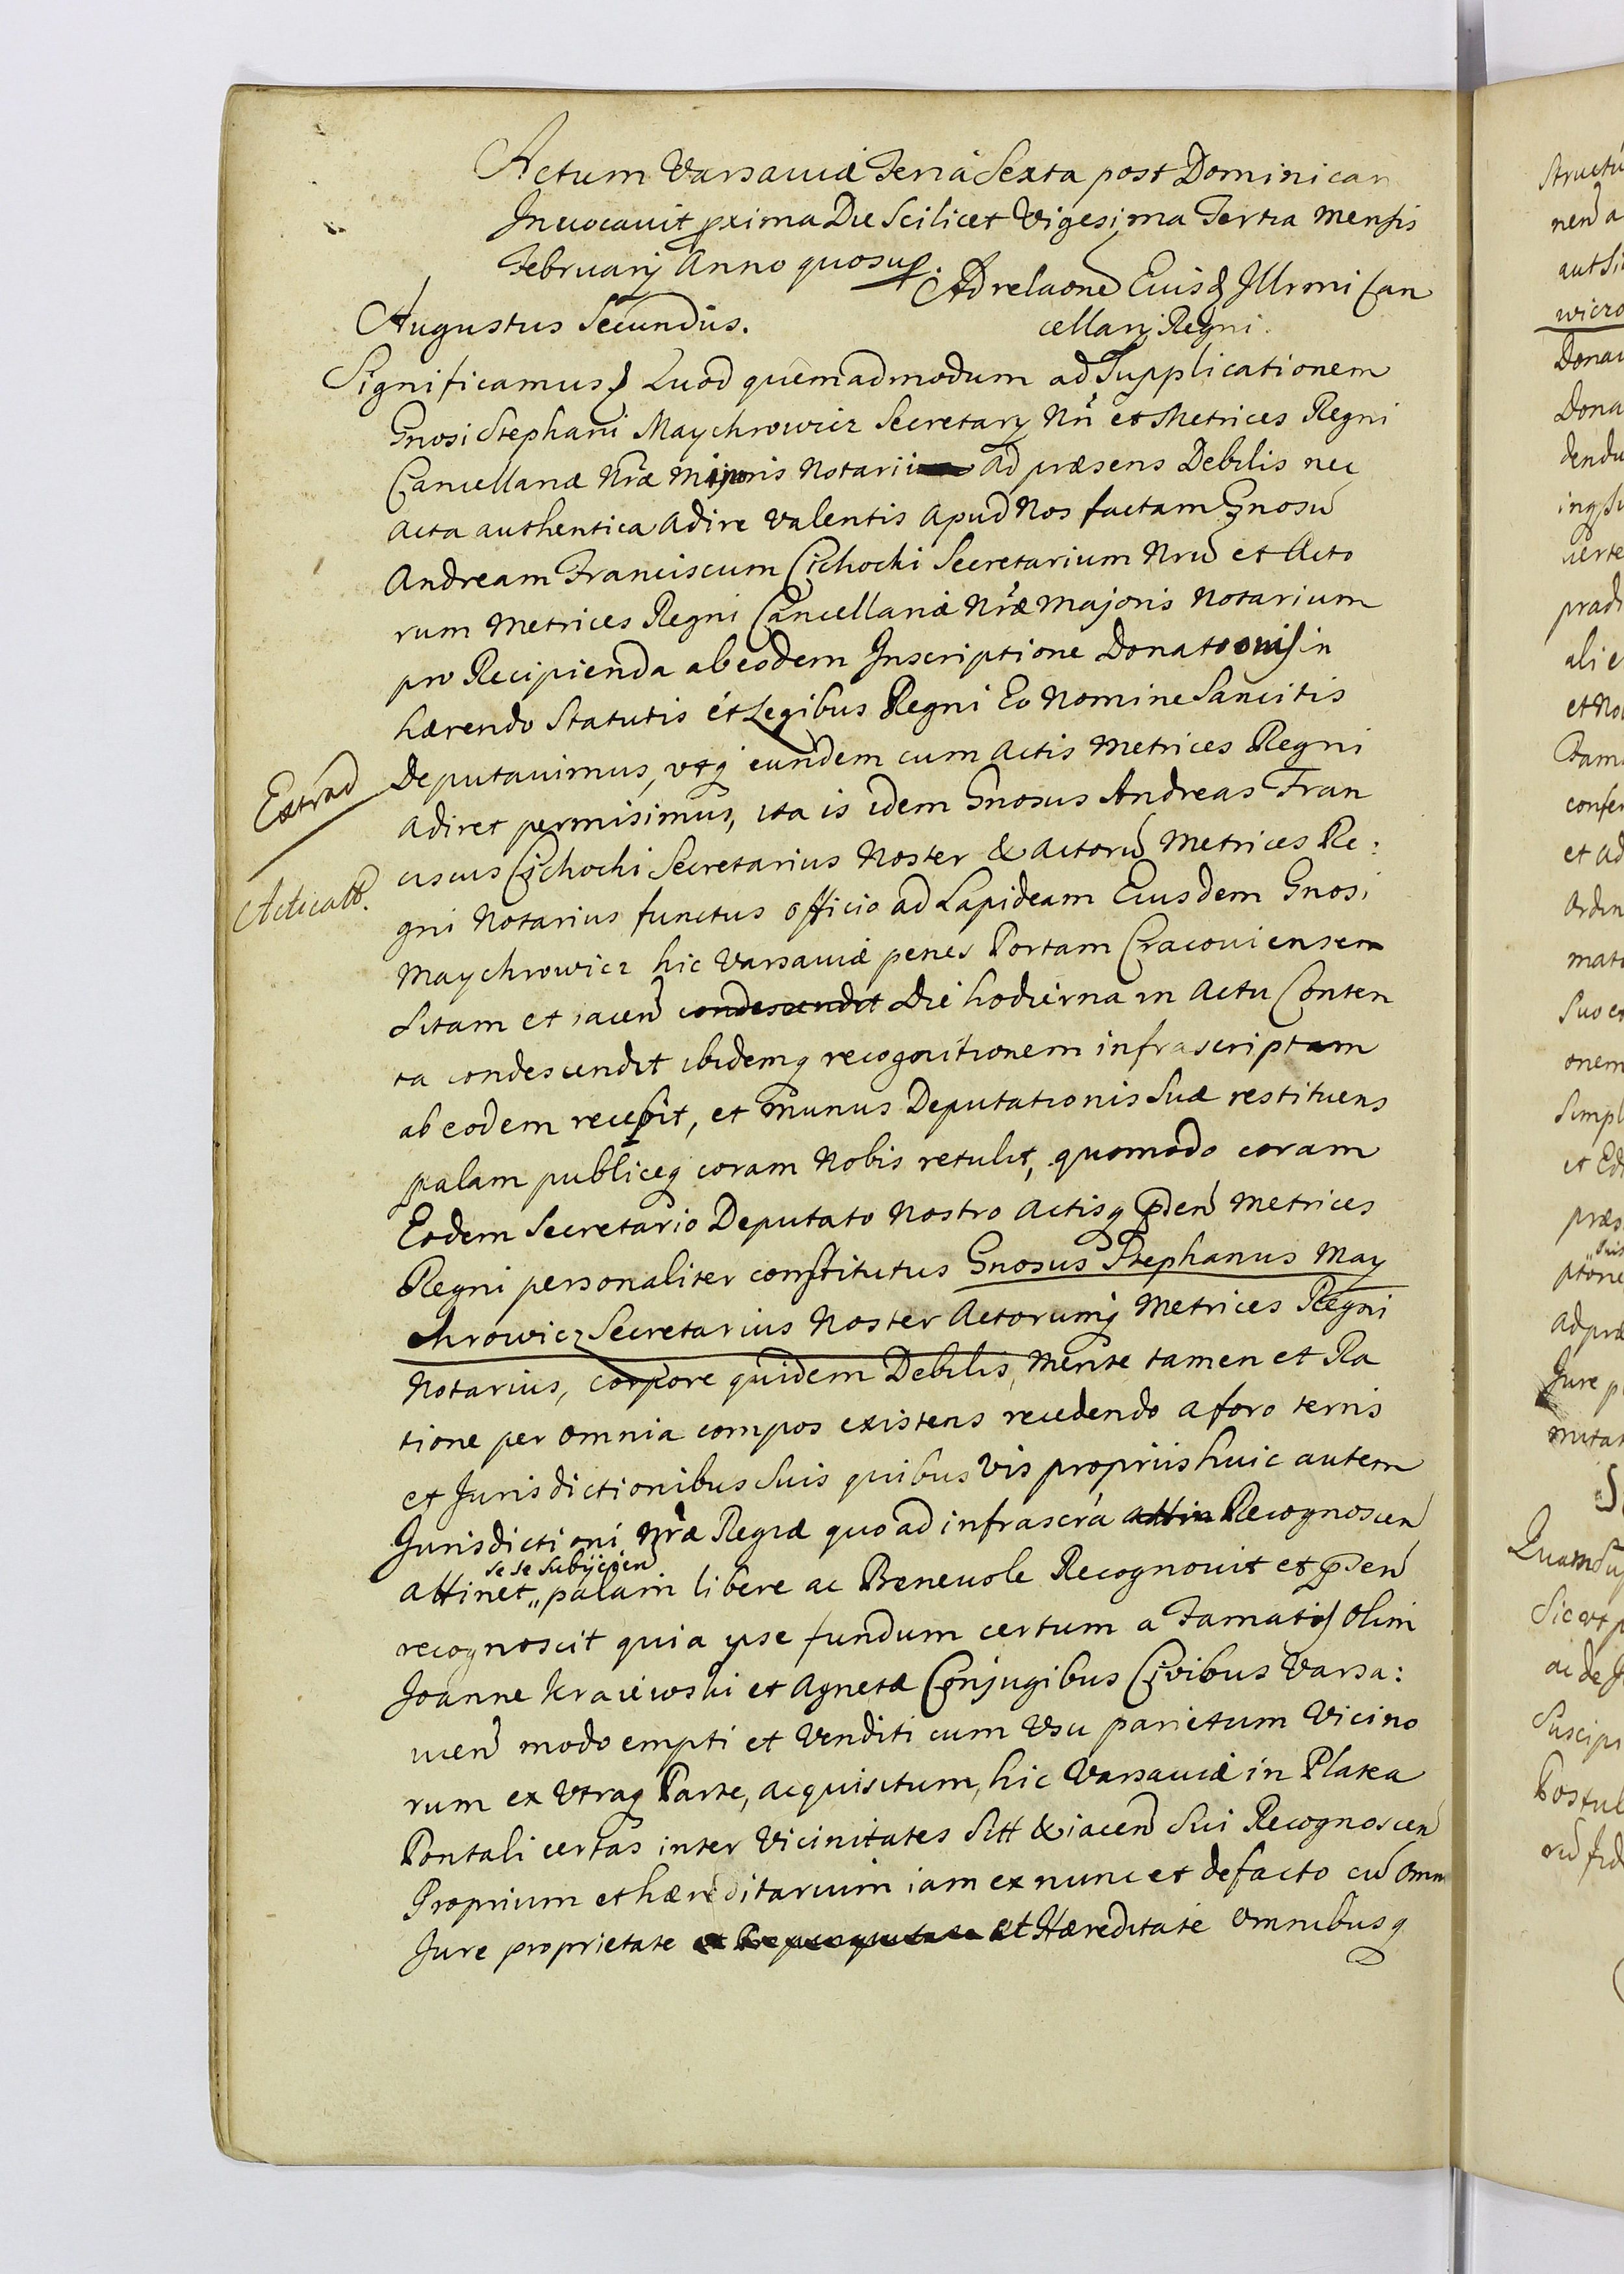 Actum Varsauiæ Feria Sexta post Dominicam
Inuocauit pxima Die Scilicet Vigesima Tertia mensis
Februarij Anno quo sup.
Ad relaonẽ Eiusd Illrmi Can
cellarij Regni.
Augustus Secundus.
Significamus Quod quemadmodum ad Supplicationem
Gnosi Stephani Maychrowicz Secretarij Nri et Metrices Regni
Cancellariæ Nræ Majoris Notarii ad præsens Debilis nec
acta authentica adire valentis apud Nos factam Gnosũ
Andream Franciscum Cichocki Secretarium Nrũ et Acto
rum Metrices Regni Cancellariæ Nræ Majoris Notarium
pro Recipienda ab eodem Inscriptione Donationis in
hærendo Statutis et Legibus Regni Eo Nomine Sancitis
Deputauimus, vtq eundem cum Actis Metrices Regni
Extrad
adiret permisimus, ita is idem Gnosus Andreas Fran
ciscus Cichocki Secretarius Noster & Actorũ Metrices Re:
Acticatt.
gni Notarius functus officio ad Lapideam Eiusdem Gnosi
Maychrowicz hic Varsauiæ penes Portam Cracouiensem
Sitam et iacen condescendit Die hodierna in Actu Conten
ta condescendit ibidemq recognitionem infrascriptam
ab eodem recepit, et munus Deputationis Suæ restituens
palam publiceq coram Nobis retulit, quomodo coram
Eodem Secretario Deputato Nostro Actisq pden Metrices
Regni personaliter constitutus Gnosus Stephanus May
chrowicz Secretarius Noster Actorumq Metrices Regni
Notarius, corpore quidem Debilis, Mente tamen et Ra
tione per omnia compos existens recedendo a foro terris
et Jurisdictionibus Suis quibus vis propriis huic autem
Jurisdictioni Nræ Regiæ quo ad infrascra attin Recognoscen
se se subijcien
attinet „ palam libere ac Beneuole Recognouit et pden
recognoscit quia ipse fundum certum a Famatis olim
Joanne Kraiewski et Agneta Conjugibus Civibus Varsa:
uien modo empti et Venditi cum Vsu parietum Vicino
rum ex Vtraq Parte, acquisitum, hic Varsauiæ in Platea
Pontali certas inter Vicinitates Sitt & iacen Sui Recognoscen
Proprium et hæreditarium iam ex nunc et de facto cũ Omni
Jure proprietate et Hæreditate Omnibusq